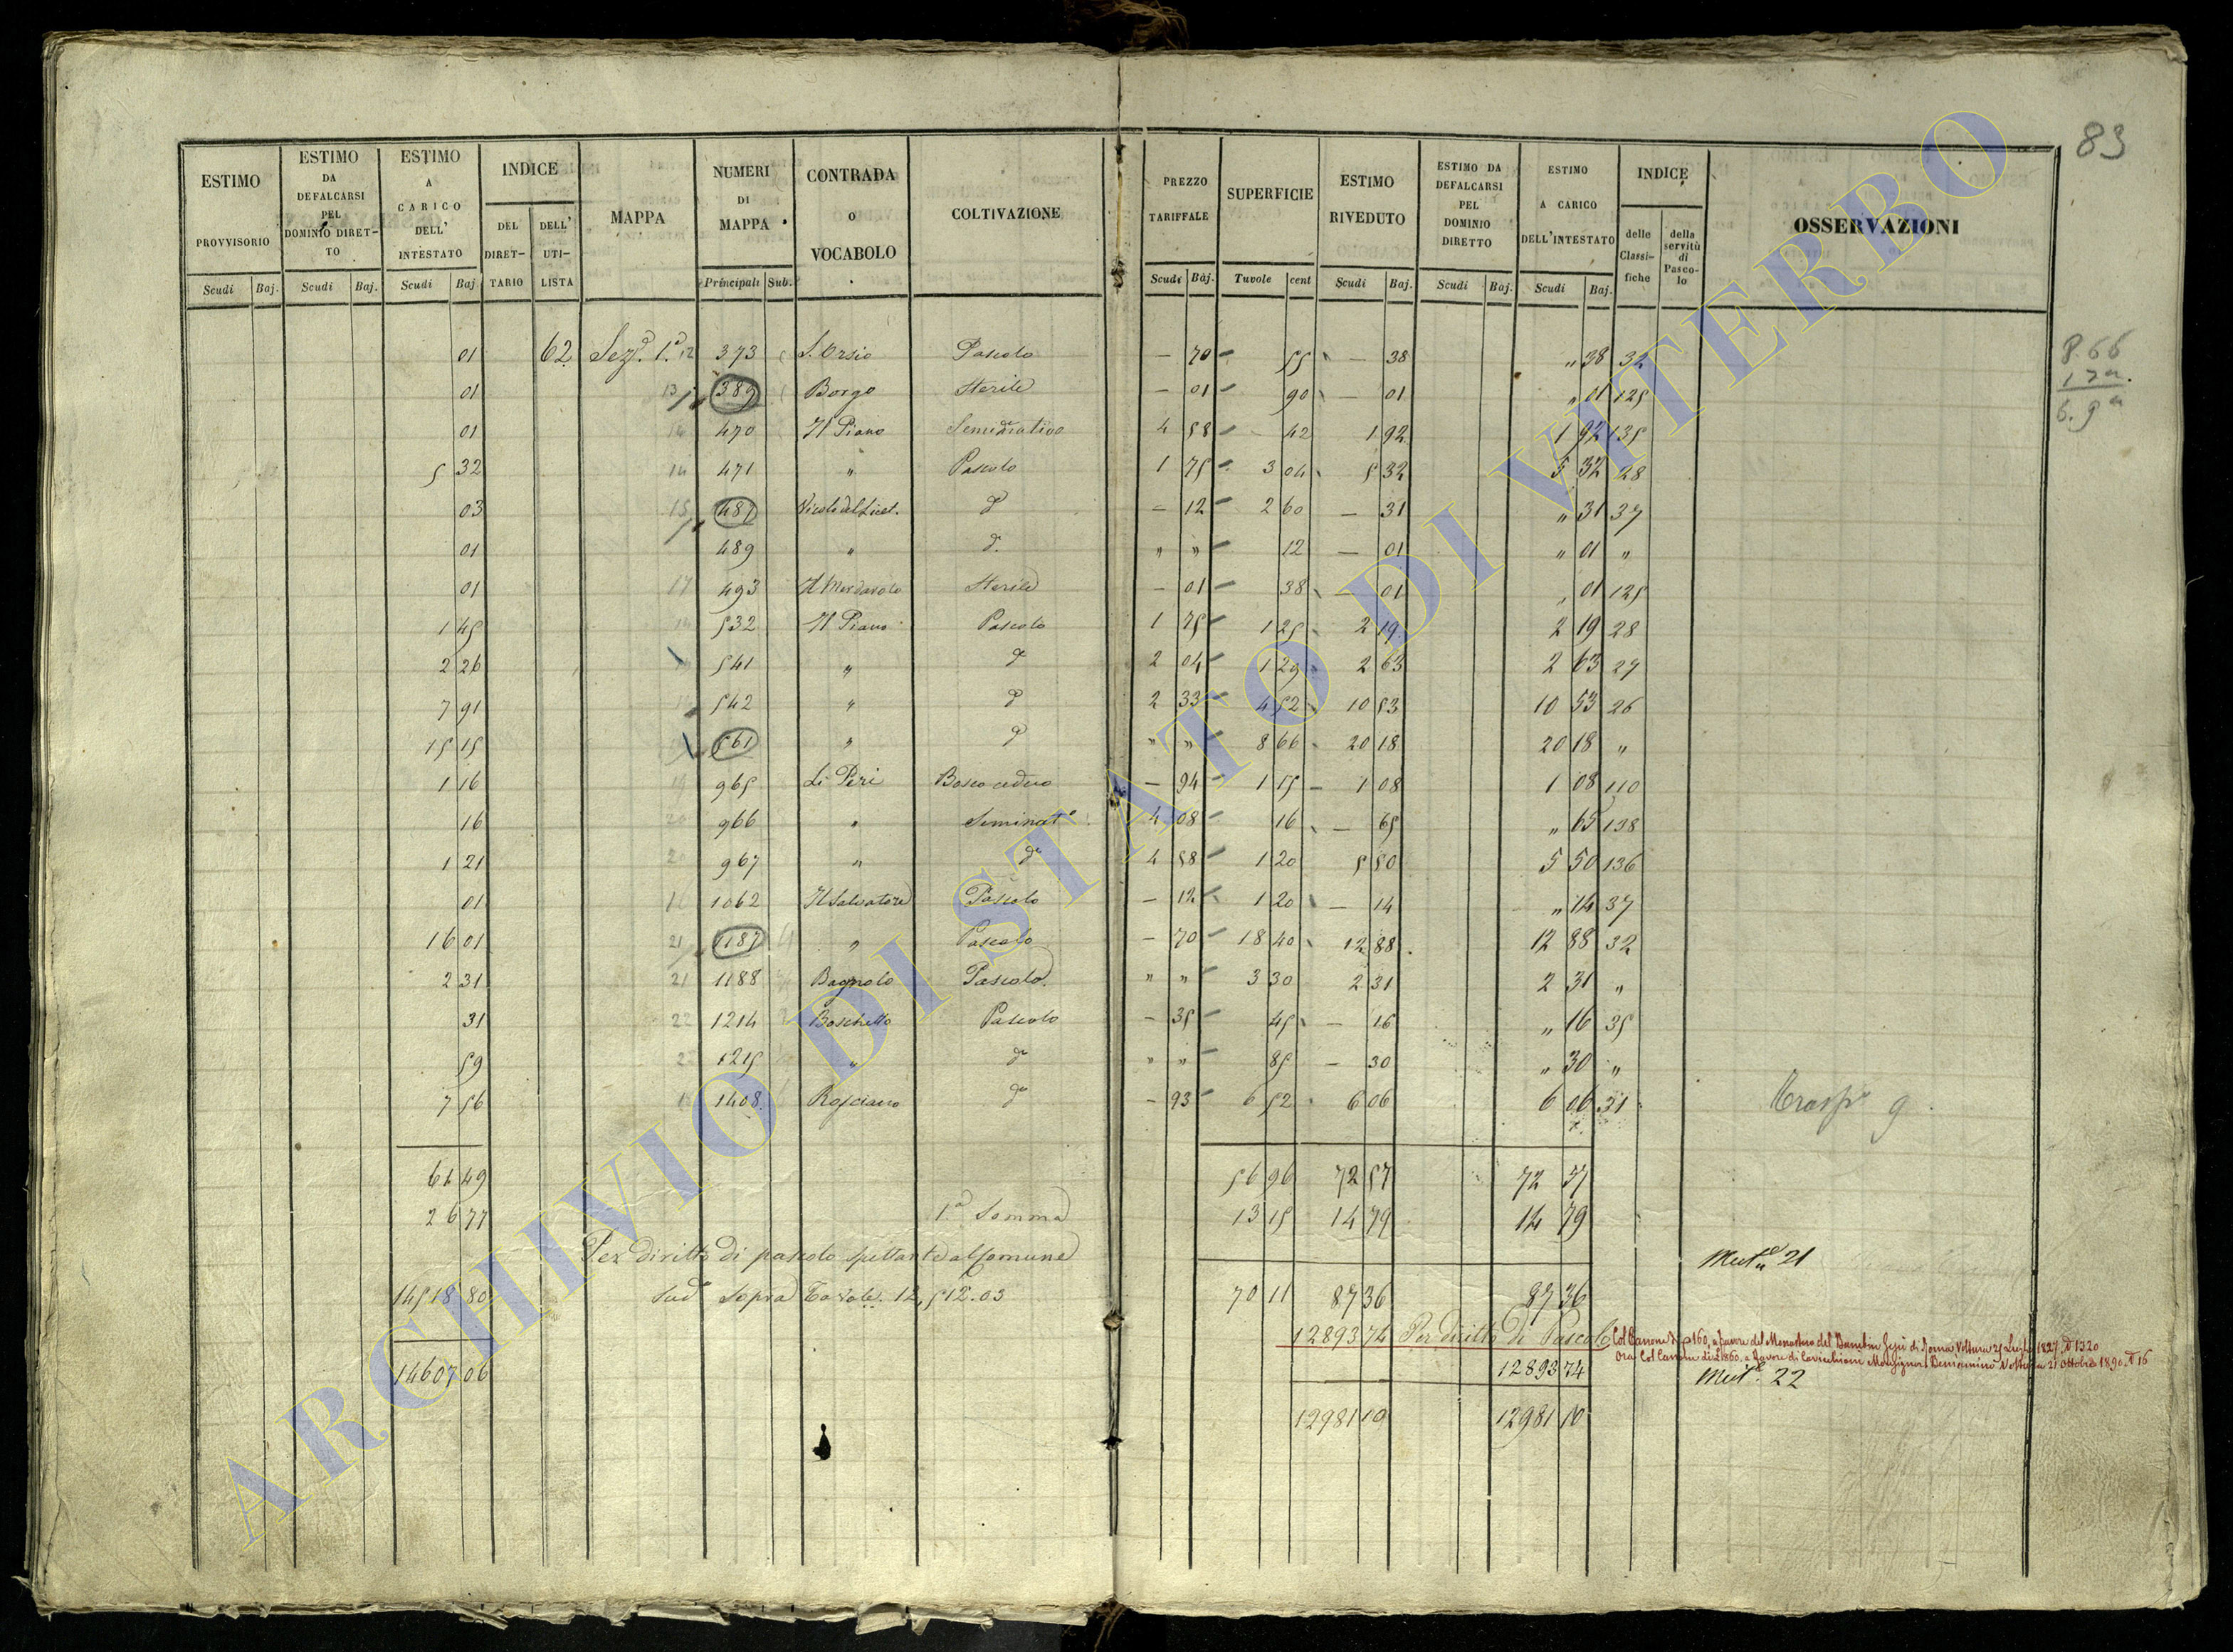 83
ESTIMO PROVVISORIO Scudi Baj.
ESTIMO DA DEFALCARSI PEL DOMINIO DIRETTO Scudi Baj.
ESTIMO A CARICO DELL' INTESTATO Scudi Baj
INDICE DEL DIRETTARIO DELL' UTILISTA
MAPPA
NUMERI DI MAPPA Principali Sub.
CONTRADA O VOCABOLO
COLTIVAZIONE
PREZZO TARIFFALE Scudi Baj.
SUPERFICIE Tavole cent
ESTIMO RIVEDUTO Scudi Baj.
ESTIMO DA DEFALCARSI PEL DOMINIO DIRETTO Scudi Baj.
ESTIMO A CARICO DELL'INTESTATO Scudi Baj.
INDICE delle Classifiche della servitù di Pascolo
OSSERVAZIONI
01 62 Sez.e 1.a 12 373 S. Orsio Pascolo — 70 55 — 38 " 38 32
01 13 389 Borgo Sterile — 01 90 — 01 " 01 125
01 14 470 Il Piano Seminativo 4 58 42 1 92 1 92 135
5 32 14 471 " Pascolo 1 75 3 04 5 32 5 32 28
03 15 487 d.o — 12 2 60 — 31 " 31 37
01 489 " d.o " " 12 — 01 " 01 "
01 17 493 Sterile — 01 38 — 01 " 01 125
1 45 14 532 Il Piano Pascolo 1 75 1 25 2 19 2 19 28
2 26 541 " d.o 2 04 1 29 2 63 2 63 27
7 91 542 " d.o 2 33 4 52 10 53 10 53 26
15 15 561 " d.o " " 8 66 20 18 20 18 "
1 16 19 965 Li Piri Bosco ceduo — 94 1 15 1 08 1 08 110
16 20 966 " Seminat.o 4 08 16 — 65 " 65 138
1 21 20 967 " d.o 4 58 1 20 5 50 5 50 136
01 1062 Il Salvatore Pascolo — 12 1 20 — 14 " 14 37
16 01 21 1187 " Pascolo — 70 18 40 12 88 12 88 32
2 31 21 1188 Bagnolo Pascolo " " 3 30 2 31 2 31 "
31 22 1214 Boschetto Pascolo — 35 45 — 16 " 16 35
59 1215 " d.o " " 85 — 30 " 30 "
7 56 1408 Rosciano d.o — 93 6 52 6 06 6 06 31
8.66
6.9
61 49 56 96 72 57 72 57
26 77 1.a Somma 13 15 14 79 14 79
Per diritto di pascolo spettante al Comune
14518 80 sud.o sopra Tavole 12,512.03 70 11 87 36 87 36
Mut.e 21
12893 74 Per diritto di Pascolo
Col Canone di 160, a favore del Monastero del Bambin Gesù di Roma Voltura 25 Luglio 1827 N 1320
Ora Col Canone di 860, a favore di Monsignor Beniamino Voltura 21 Ottobre 1890 N 16
14607 06 12893 74
Mut.e 22
12981 10 12981 10
ARCHIVIO DI STATO DI VITERBO